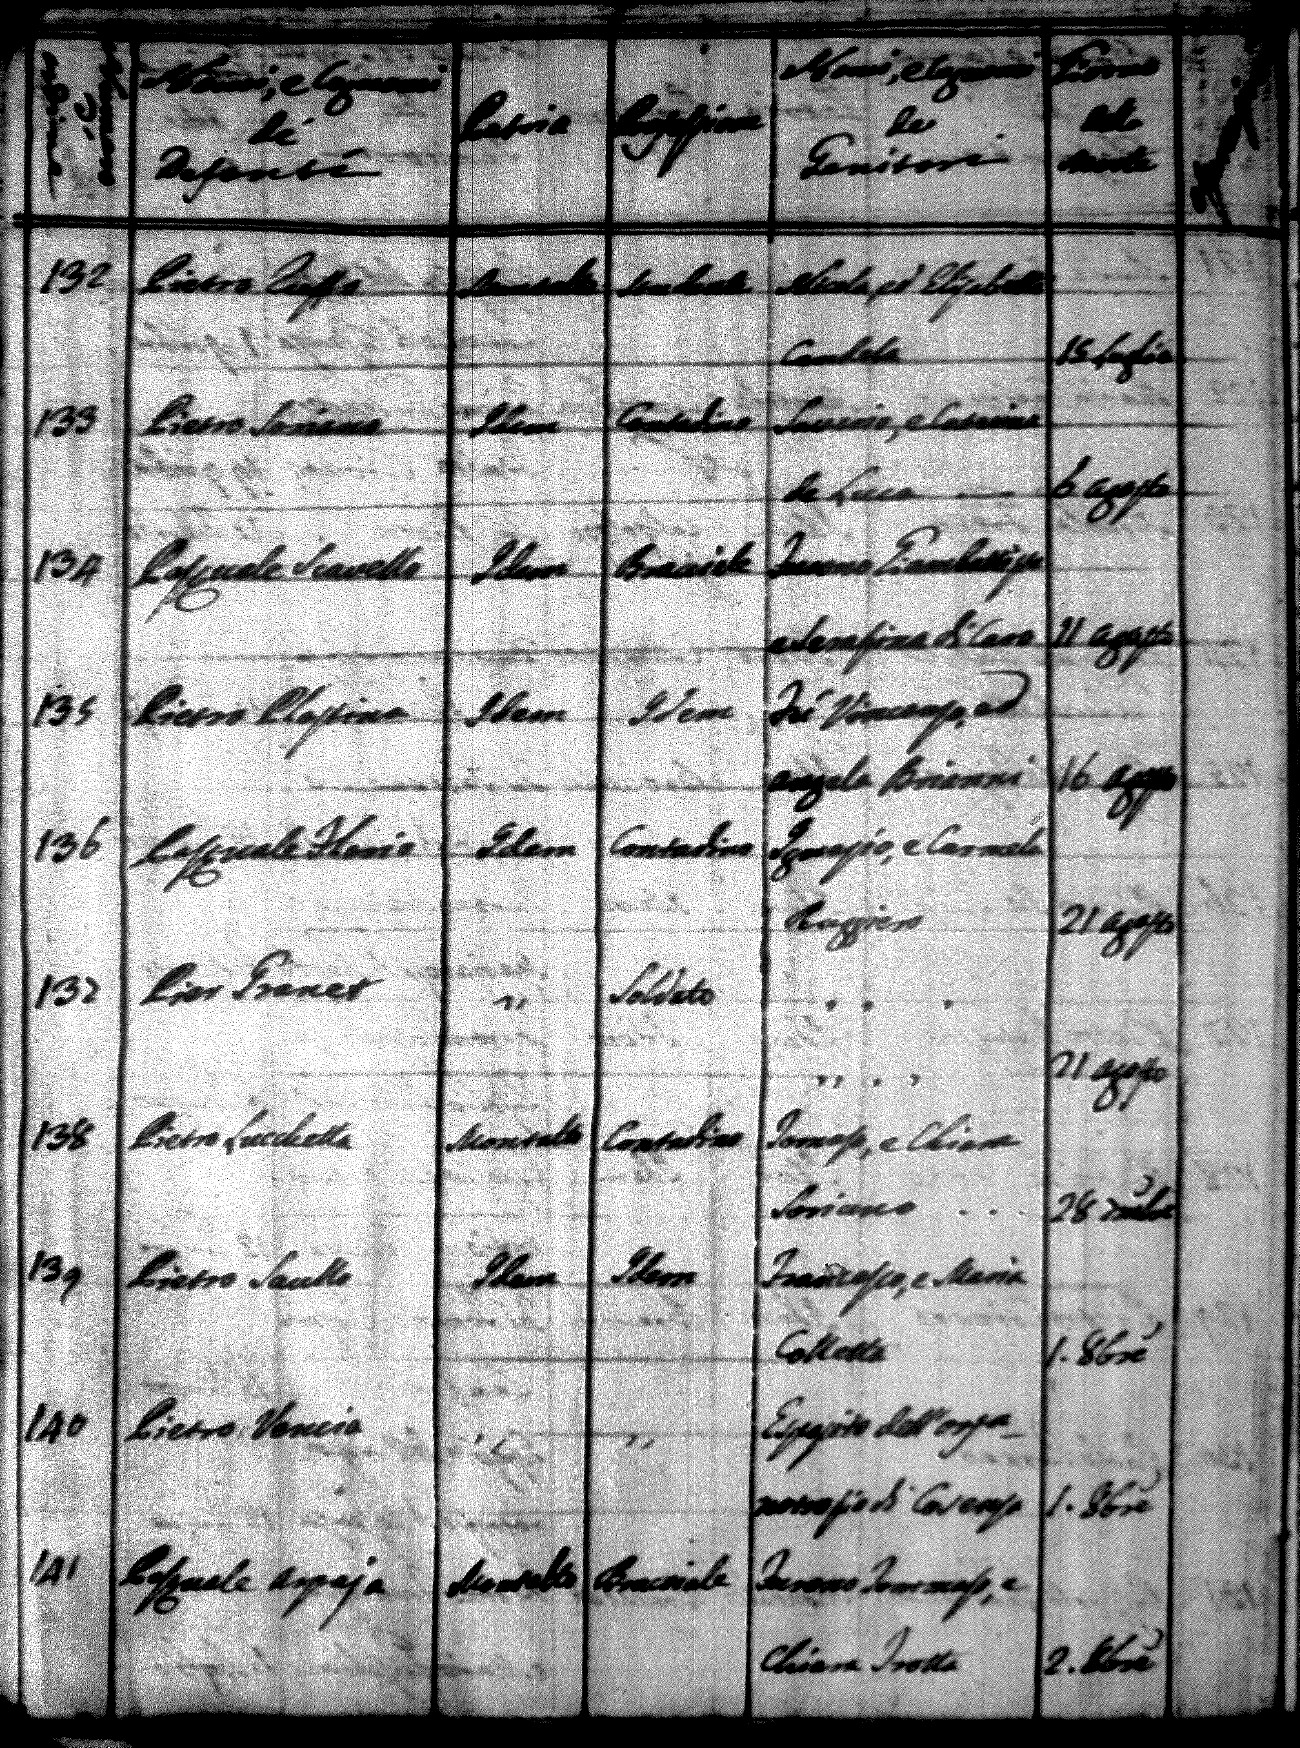 Nomi, e Cognomi
de'
Defonti
Patria
Professione
Nomi, e Cognomi
de'
Genitori
Giorno
della
morte
132 Pietro Zuffo Montalto Nicola, ed Elisabetta
Candela 15 luglio
133 Pietro Soriano Idem Contadino Saverio, e Caterina
de Luca 6 agosto
134 Pasquale Scavello Idem Bracciale Furono Giambattista
e Serafina di Caro 11 agosto
135 Pietro Plastina Idem Idem Fu Vincenzo, ed
angela Brianni 16 agosto
136 Pasquale Florio Idem Contadino Ignazio, e Carmela
Ruggiero 21 agosto
137 Pier Francet " Soldato
21 agosto
138 Pietro Lucchetta Montalto Contadino Tomaso, e Chiara
Soriano 28 7mbre
139 Pietro Sacullo Idem Idem Francesco, e Maria
Colletta 1. 8bre
140 Pietro Vencia " " Esposito dell'orfa-
notrofio di Cosenza 1. 8bre
141 Pasquale arpaja Montalto Bracciale Furono Tommaso, e
Chiara Trotta 2. 8bre